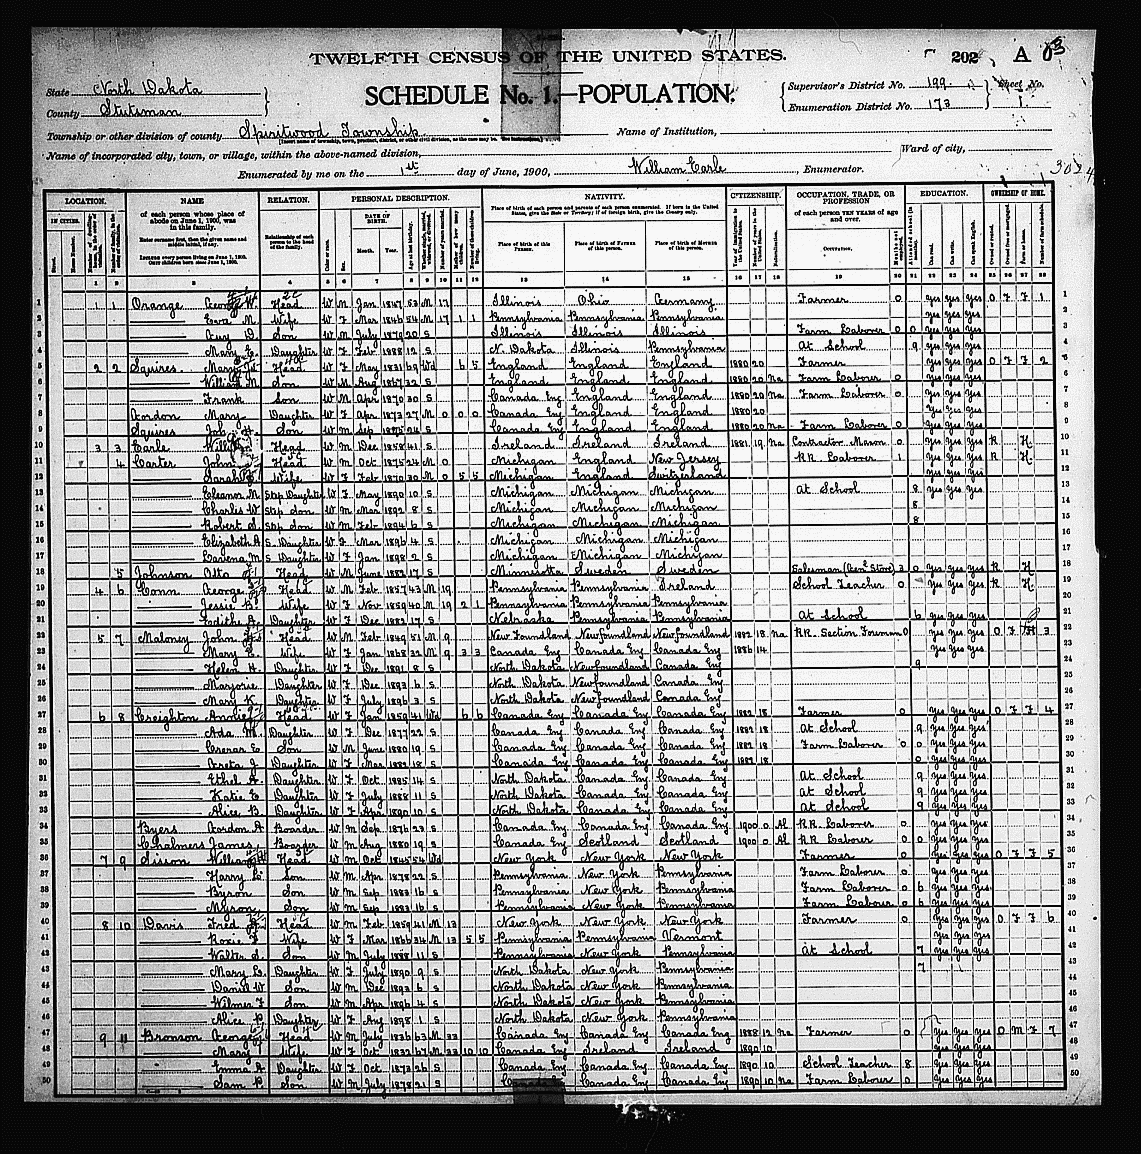 TWELFTH CENSUS OF THE UNITED STATES.
202 A
State North Dakota
County Stutsman
SCHEDULE No. 1.—POPULATION.
Supervisor's District No. 199
Enumeration District No. 173
Sheet No. 1
Township or other division of county Spiritwood Township
Name of Institution,
Name of incorporated city, town, or village, within the above-named division,
Ward of city,
Enumerated by me on the 1st day of June, 1900, William Earle, Enumerator.
LOCATION. NAME RELATION. PERSONAL DESCRIPTION. NATIVITY. CITIZENSHIP. OCCUPATION, TRADE, OR PROFESSION EDUCATION. OWNERSHIP OF HOME.
of each person whose place of abode on June 1, 1900, was in this family.
Enter surname first, then the given name and middle initial, if any.
Include every person living on June 1, 1900. Omit children born since June 1, 1900.
Relationship of each person to the head of the family.
DATE OF BIRTH. Month. Year.
Place of birth of this Person. Place of birth of Father of this person. Place of birth of Mother of this person.
of each person TEN YEARS of age and over.
1 1 1 Orange George W. Head W M Jan 1847 53 M 17 Illinois Ohio Germany Farmer 0 yes yes yes O F F 1
2 Eva M. Wife W F Mar 1846 54 M 17 1 1 Pennsylvania Pennsylvania Pennsylvania yes yes yes
3 Guy D. Son W M July 1879 20 S Illinois Illinois Illinois Farm Laborer 0 0 yes yes yes
4 Mary E. Daughter W F Feb 1888 12 S N. Dakota Illinois Pennsylvania At School 9 yes yes yes
5 2 2 Squires Mary Head W F May 1831 69 Wd 6 5 England England England 1880 20 Farmer yes yes yes O F F 2
6 William M. Son W M Aug 1867 32 S England England England 1880 20 Na Farm Laborer 0 yes yes yes
7 Frank Son W M Apr 1870 30 S Canada Eng England England 1880 20 Na Farm Laborer 0 yes yes yes
8 Gordon Mary Daughter W F Apr 1873 27 M 0 0 0 Canada Eng England England 1880 20 yes yes yes
9 Squires Son W M Sep 1875 24 S Canada Eng England England 1880 20 Na Farm Laborer 0 yes yes yes
10 3 3 Earle William Head W M Dec 1858 41 S Ireland Ireland Ireland 1881 19 Na Contractor Mason 0 yes yes yes R H
11 4 Carter John Head W M Oct 1875 24 M 0 Michigan England New Jersey RR. Laborer 1 yes yes yes R H
12 Sarah Wife W F Feb 1870 30 M 0 5 5 Michigan England Switzerland yes yes yes
13 Eleanor M. Step Daughter W F May 1890 10 S Michigan Michigan Michigan At School 8 yes yes yes
14 Charles W Step Son W M Mar 1892 8 S Michigan Michigan Michigan 8
15 Robert S. Step Son W M Feb 1894 6 S Michigan Michigan Michigan 8
16 Elizabeth A S. Daughter W F Mar 1896 4 S Michigan Michigan Michigan
17 Lavena M. S. Daughter W F Jan 1898 2 S Michigan Michigan Michigan
18 5 Johnson Otto Head W M June 1882 17 S Minnesota Sweden Sweden Salesman (Gen'l Store) 3 0 yes yes yes R H
19 4 6 Conn George Head W M Feb 1857 43 M 19 Pennsylvania Pennsylvania Ireland School Teacher 0 yes yes yes R H
20 Jessie B. Wife W F Nov 1859 40 M 19 2 1 Pennsylvania Pennsylvania Pennsylvania yes yes yes
21 Edith A. Daughter W F Dec 1882 17 S Nebraska Pennsylvania Pennsylvania At School 6 yes yes yes
22 5 7 Maloney John Head W M Feb 1849 51 M 9 New Foundland Newfoundland Newfoundland 1882 18 Na RR. Section Foreman 0 yes yes yes O F H 3
23 Mary E. Wife W F Jan 1868 32 M 9 3 3 Canada Eng Canada Eng Canada Eng 1886 14 yes yes yes
24 Helen H. Daughter W F Dec 1891 8 S North Dakota Newfoundland Canada Eng 9
25 Marjorie Daughter W F Dec 1893 6 S North Dakota Newfoundland Canada Eng
26 Mary K. Daughter W F July 1896 3 S North Dakota Newfoundland Canada Eng
27 6 8 Creighton Annie Head W F Jan 1859 41 Wd 6 6 Canada Eng Canada Eng Canada Eng 1882 18 Farmer 0 yes yes yes O F F 4
28 Ada M. Daughter W F Dec 1877 22 S Canada Eng Canada Eng Canada Eng 1882 18 At School 9 yes yes yes
29 Crerar E. Son W M June 1880 19 S Canada Eng Canada Eng Canada Eng 1882 18 Farm Laborer 0 0 yes yes yes
30 Greta J. Daughter W F Mar 1882 18 S Canada Eng Canada Eng Canada Eng 1882 18 0 yes yes yes
31 Ethel A. Daughter W F Oct 1885 14 S North Dakota Canada Eng Canada Eng At School 9 yes yes yes
32 Katie E. Daughter W F July 1888 11 S North Dakota Canada Eng Canada Eng At School 9 yes yes yes
33 Alice B. Daughter W F Apr 1890 10 S North Dakota Canada Eng Canada Eng At School 9 yes yes yes
34 Byers Gordon A Boarder W M Sep 1876 23 S Canada Eng Canada Eng Canada Eng 1900 0 Al RR. Laborer 0 yes yes yes
35 Chalmers James Boarder W M Aug 1880 19 S Canada Eng Scotland Scotland 1900 0 Al RR Laborer 0 0 yes yes yes
36 7 9 Sisson William Head W M Oct 1845 54 Wd New York New York New York Farmer 0 yes yes yes O F F 5
37 Harry L. Son W M Apr 1878 22 S Pennsylvania New York Pennsylvania Farm Laborer 0 yes yes yes
38 Byron Son W M Sep 1883 16 S Pennsylvania New York Pennsylvania Farm Laborer 0 6 yes yes yes
39 Myron Son W M Sep 1883 16 S Pennsylvania New York Pennsylvania Farm Laborer 0 6 yes yes yes
40 8 10 Davis Fred Head W M Feb 1859 41 M 13 New York New York New York Farmer 0 yes yes yes O F F 6
41 Roxie F Wife W F Mar 1866 34 M 13 5 5 Pennsylvania Pennsylvania Vermont yes yes yes
42 Walter S. Son W M July 1888 11 S North Dakota New York Pennsylvania At School 7 yes yes yes
43 Mary L. Daughter W F July 1890 9 S North Dakota New York Pennsylvania 7
44 Daniel W Son W M Dec 1893 6 S North Dakota New York Pennsylvania
45 Wilmer F Son W M Apr 1896 4 S North Dakota New York Pennsylvania
46 Alice P. Daughter W F Aug 1898 1 S North Dakota New York Pennsylvania
47 9 11 Bronson George Head W M July 1836 63 M 33 Canada Eng Canada Eng Canada Eng 1888 12 Na Farmer 0 yes yes yes O M F 7
48 Mary Wife W F Oct 1832 67 M 33 10 10 Canada Eng Ireland Ireland 1890 10 yes yes yes
49 Emma A Daughter W F 1873 26 S Canada Eng Canada Eng Canada Eng 1890 10 School Teacher 8 yes yes yes
50 Sam P. Son W M July 1878 21 S Canada Eng Canada Eng Canada Eng 1890 10 Na Farm Laborer 0 yes yes yes